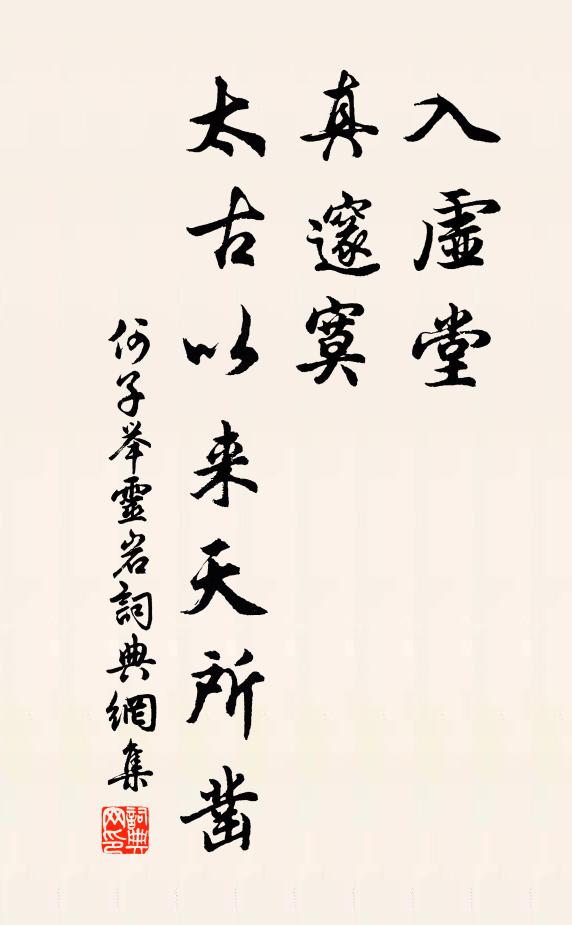 入虚堂
真邃寞
太古以来天所凿
何子举靈岩詞典網集
詞典
网印